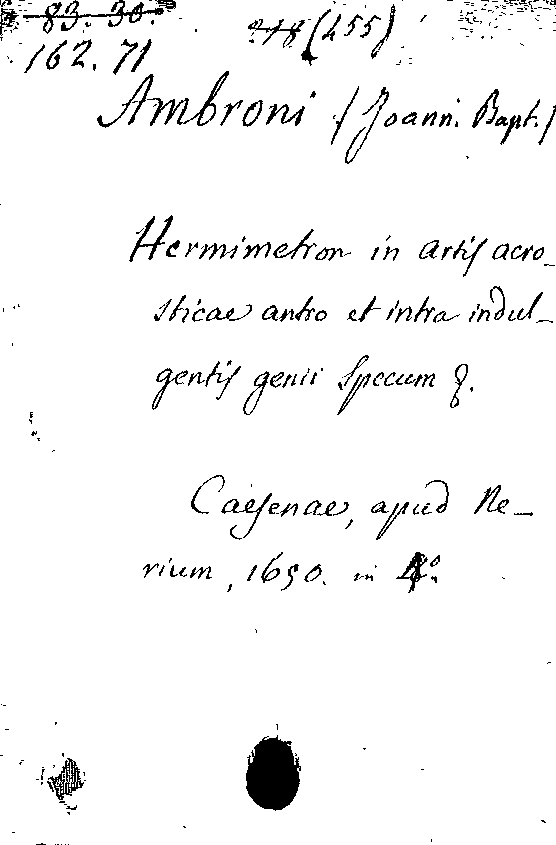 83. 30.
218 (455)
162. 71
Ambroni (Joann. Bapt.)
Hermimetron in artis acro-
sticae antro et intra indul-
gentis genii specum &.
Caesenae, apud Ne-
rium, 1650. in 4º.